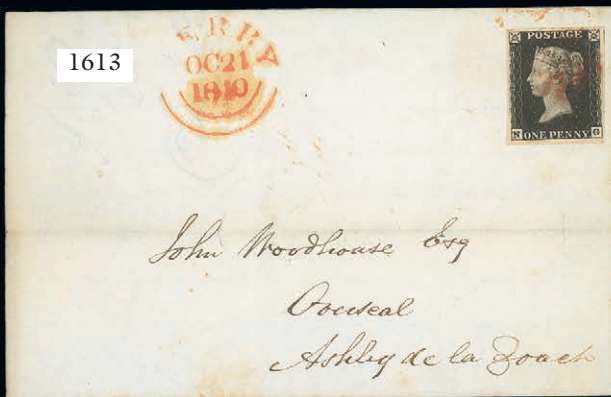 1613
ERBY
OC21
1840
POSTAGE
N G
ONE PENNY
John Woodhouse Esq
Overseal
Ashby de la Zouch